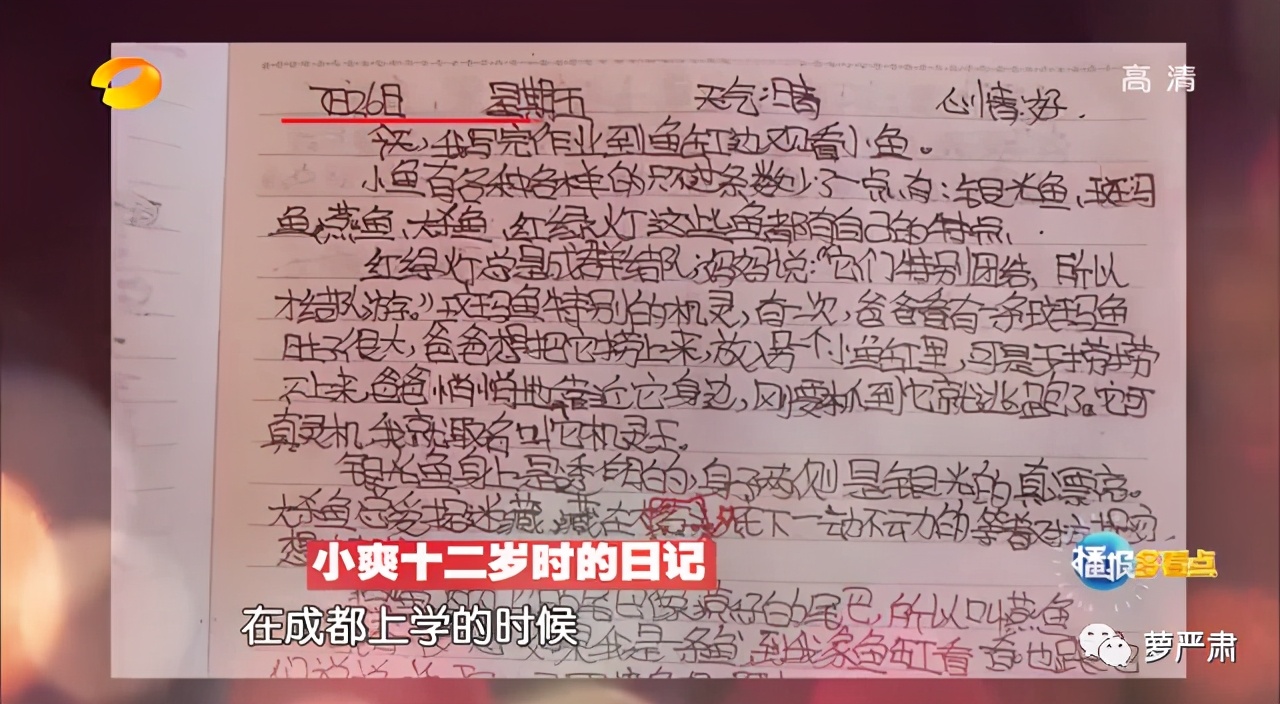 高清
7月26日 星期五 天气:晴 心情:好.
今天,我写完作业到鱼缸边观看小鱼。
小鱼有各种各样的只不过条数少了一点,有:银光鱼,斑马
鱼,燕鱼、大杀鱼、红绿灯这些鱼都有自己的特点,
红绿灯总是成群结队,妈妈说:“它们特别团结,所以
才结队游。”斑马鱼特别的机灵,有一次,爸爸看有一条斑马鱼
肚子很大,爸爸想把它捞上来,放入另一个小鱼缸里,可是
不上来,爸爸悄悄地靠近它身边,刚要抓到它就逃跑了。它可
真灵机,我就取名叫它机灵王。
银光鱼身上是透明的,身子两侧是银光的真漂亮。
大杀鱼总爱捉迷藏,藏在 底下一动不动的等着
想
小爽十二岁时的日记
播报多看点
像 的尾巴,所以叫燕鱼
在成都上学的时候
我是一条鱼 到我家鱼缸看看也
萝严肃